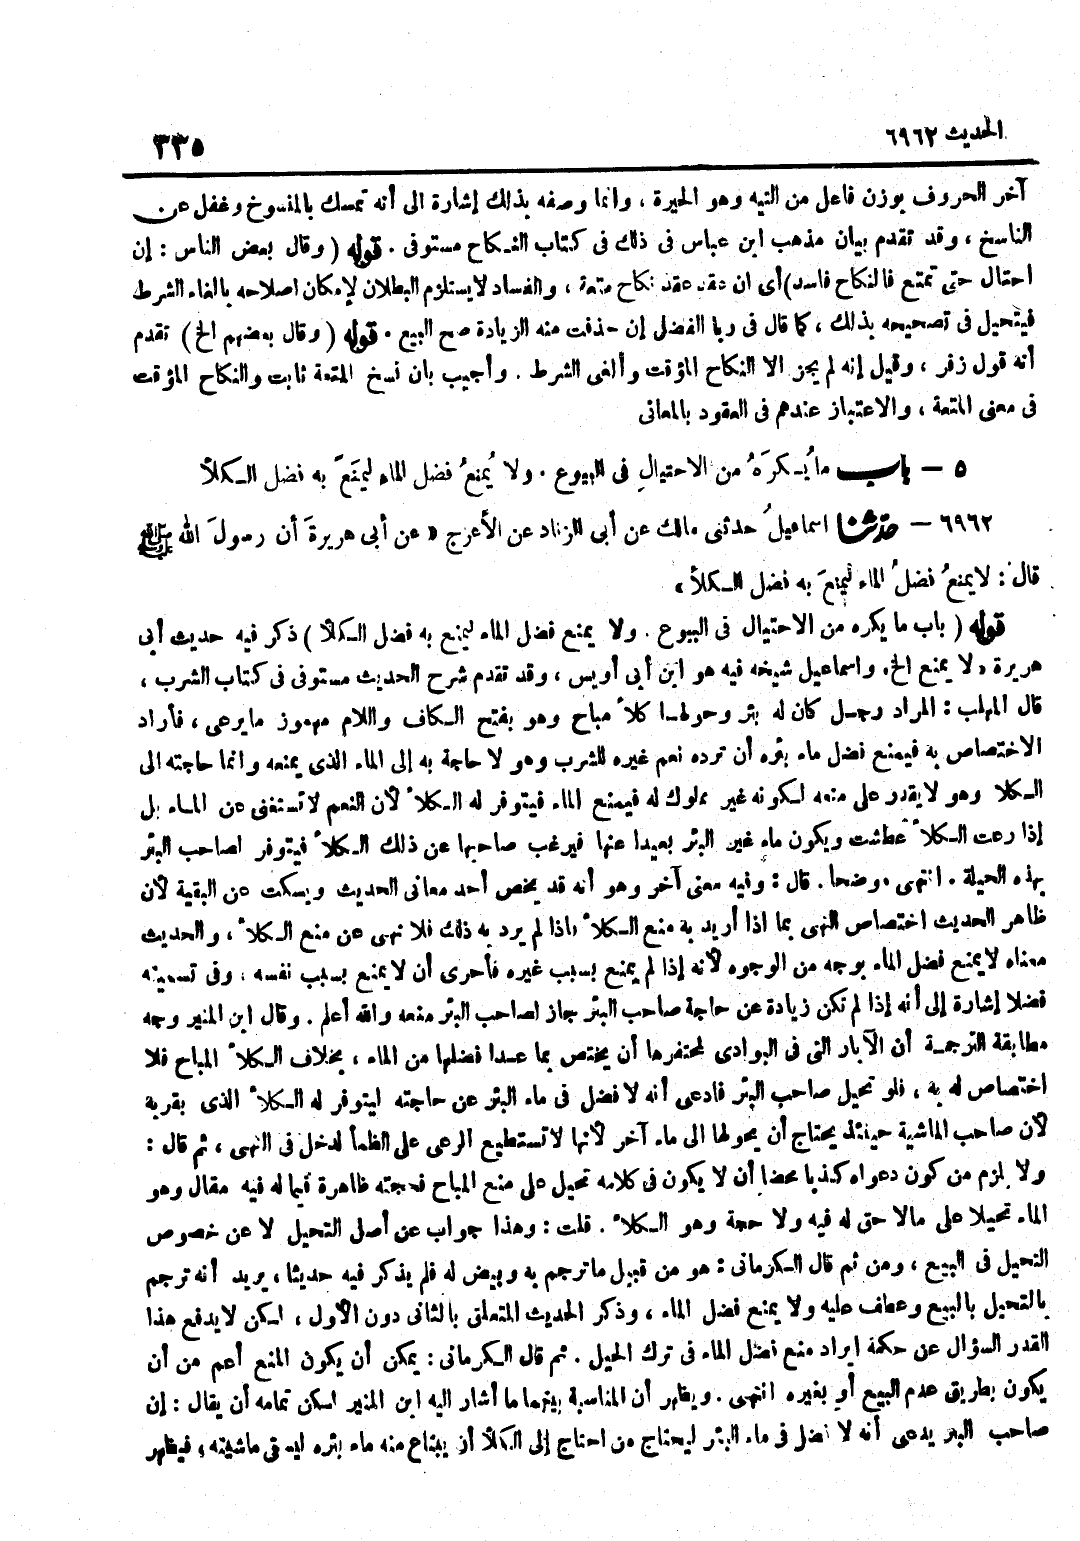 الحديث ٦٩٦٢
٣٣٥
آخر الحروف بوزن فاعل من التيه وهو الحيرة ، وانما وصفه بذلك إشارة الى أنه تمسك بالمنسوخ وغفل عن
الناسخ ، وقد تقدم بيان مذهب ابن عباس فى ذلك فى كتاب النـكاح مستوفى . قوله ( وقال بعض الناس : إن
احتال حتى تمتع فالنكاح فاسد ) أى ان عقد عقد نكاح متعة ، والفساد لا يستلزم البطلان لإمكان اصلاحه بالغاء الشرط
فيتحيل فى تصحيحه بذلك ، كما قال فى ربا الفضل إن حذفت منه الزيادة صح البيع . قوله ( وقال بعضهم الخ ) تقدم
أنه قول زفر ، وقيل إنه لم يجز الا النكاح المؤقت وألغى الشرط . وأجيب بان نسخ المتعة ثابت والنكاح المؤقت
فى معنى المتعة ، والاعتباز عندهم فى العقود بالمعانى
٥ – باب ما يُـكرَهُ من الاحتيالِ فى البيوع . ولا يُمنعُ فضل الماء ليُمنَعَ به فضل الـكلأ
٦٩٦٢ – حدّثنا اسماعيلُ حدثنى مالك عن أبى الزناد عن الأعرج « عن أبى هريرةَ أن رسولَ الله ﷺ
قال : لا يمنعُ فضلُ الماء ليُمنعَ به فضل الـكلأ »
قوله ( باب ما يكره من الاحتيال فى البيوع . ولا يمنع فضل الماء ليمنع به فضل الـكلأ ) ذكر فيه حديث أبى
هريرة « لا يمنع الخ » واسماعيل شيخه فيه هو ابن أبى أويس ، وقد تقدم شرح الحديث مستوفى فى كتاب الشرب ،
قال المهلب : المراد رجـل كان له بئر وحولهـا كلأ مباح وهو بفتح الـكاف واللام مهموز ما يرعى ، فأراد
الاختصاص به فيمنع فضل ماء بئره أن ترده نعم غيره للشرب وهو لا حاجة به إلى الماء الذى يمنعه وانما حاجته الى
الـكلأ وهو لا يقدر على منعه لـكونه غير مملوك له فيمنع الماء فيتوفر له الـكلأ لأن النعم لا تستغنى عن المـاء بل
إذا رعت الـكلأ عطشت ويكون ماء غير البئر بعيدا عنها فيرغب صاحبها عن ذلك الـكلأ فيتوفر لصاحب البئر
بهذه الحيلة . انتهى موضحا . قال : وفيه معنى آخر وهو أنه قد يخص أحد معانى الحديث ويسكت عن البقية لأن
ظاهر الحديث اختصاص النهى بما اذا أريد به منع الـكلأ فاذا لم يرد به ذلك فلا نهى عن منع الـكلأ ، والحديث
معناه لا يمنع فضل الماء بوجه من الوجوه لأنه إذا لم يمنع بسبب غيره فأحرى أن لا يمنع بسبب نفسه ، وفى تسميته
فضلا إشارة إلى أنه إذا لم تكن زيادة عن حاجة صاحب البئر جاز لصاحب البئر منعه والله أعلم . وقال ابن المنير وجه
مطابقة الترجمـة أن الآبار التى فى البوادى لمحتفرها أن يختص بما عـدا فضلها من الماء ، بخلاف الـكلأ المباح فلا
اختصاص له به ، فلو تحيل صاحب البئر فادعى أنه لا فضل فى ماء البئر عن حاجته ليتوفر له الـكلأ الذى بقربه
لأن صاحب الماشية حينئذ يحتاج أن يحولها الى ماء آخر لأنها لا تستطيع الرعى على الظمأ لدخل فى النهى ، ثم قال :
ولا يلزم من كون دعواه كذبا محضا أن لا يكون فى كلامه تحيل على منع المباح فحجته ظاهرة فيما له فيه مقال وهو
الماء تحيلا على مالا حق له فيه ولا حجة وهو الـكلأ . قلت : وهذا جواب عن أصل التحيل لا عن خصوص
التحيل فى البيع ، ومن ثم قال الـكرمانى : هو من قبيل ما ترجم به وبيض له فلم يذكر فيه حديثا ، يريد أنه ترجم
بالتحيل بالبيع وعطف عليه ولا يمنع فضل الماء ، وذكر الحديث المتعلق بالثانى دون الأول ، لـكن لا يدفع هذا
القدر السؤال عن حكمة ايراد منع فضل الماء فى ترك الحيل . ثم قال الـكرمانى : يمكن أن يكون المنع أعم من أن
يكون بطريق عدم البيع أو بغيره انتهى . ويظهر أن المناسبة بينهما ما أشار اليه ابن المنير لـكن تمامه أن يقال : إن
صاحب البئر يدعى أنه لا فضل فى ماء البئر ليحتاج من احتاج إلى الكلأ أن يبتاع منه ماء بئره ليسقى ماشيته ، فيظهر